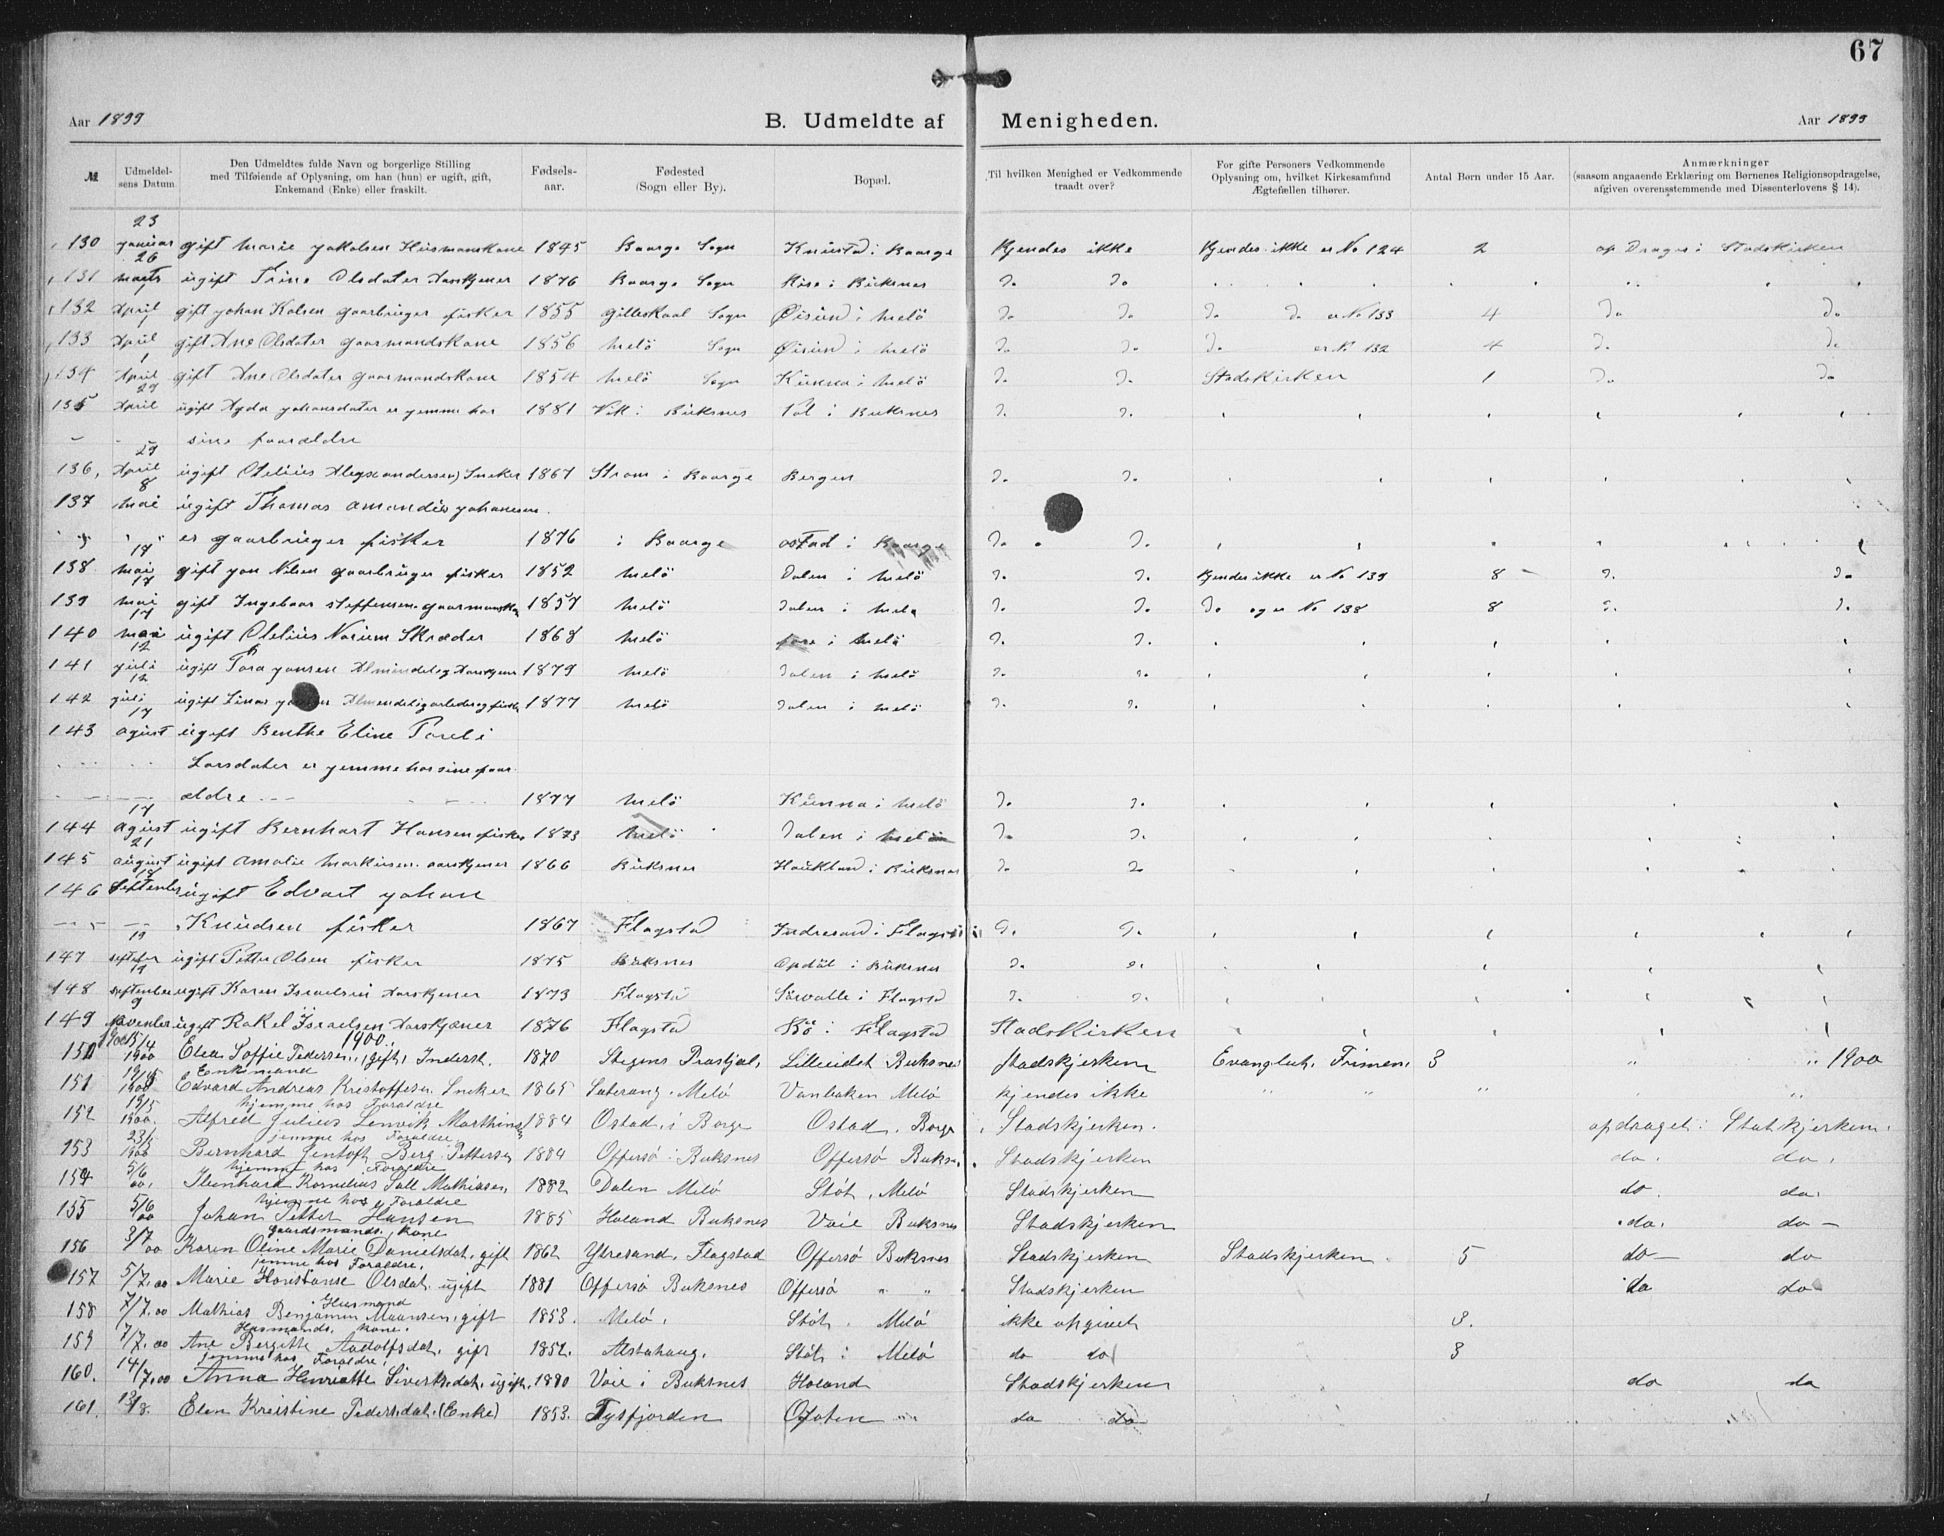 67
Aar 1899 B. Udmeldte af Menigheden. Aar 1899
№ Udmeldelsens Datum. Den Udmeldtes fulde Navn og borgerlige Stilling med Tilføiende af Oplysning, om han (hun) er ugift, gift, Enkemand (Enke) eller fraskilt. Fødselsaar. Fødested (Sogn eller By). Bopæl. Til hvilken Menighed er Vedkommende traadt over? For gifte Personers Vedkommende Oplysning om, hvilket Kirkesamfund Ægtefællen tilhører. Antal Børn under 15 Aar. Anmærkninger (saasom angaaende Erklæring om Børnenes Religionsopdragelse, afgiven overensstemmende med Dissenterlovens § 14).
130 23 januar gift Marie Jakolsen Husmanskone 1845 Baarge Sogn Knustad i Baarge Kjendes ikke Kjendes ikke er No 124 2 op Drages i Stadskirken
131 26 marts ugift Trine Olsdater 1876 Baarge Sogn i Buksnes Do Do
132 April gift Johan Kolsen gaarbruger fisker 1855 Gilleskaal Sogn Øisund i Melö Do Do Do Do er No 133 4 Do Do
133 1 April gift Ane Olsdater gaarmandskone 1856 Melö Sogn Øisund i Melö Do Do Do er No 132 4 Do Do
134 1 April gift Ane Olsdater gaarmandskone 1854 Melö Sogn Kunna i Melö Do Do Stadskirken 1 Do Do
135 29 April ugift Agda Johansdater er jemme hos 1881 Vik i Buksnes Vol i Buksnes Do Do
sine faarældre
136. 29 April ugift Otelius Alegxandersen Sneker 1867 Strom i Baarge Bergen Do Do
137 8 Mai ugift Thomas Amandus Johansen
er gaarbruger fisker 1876 i Baarge ostad i Baarge Do Do
138 14 mai gift Jon Nilsen gaarbruger fisker 1852 Melö Dalen i Melö Do Do Kjendes ikke er No 139 8 Do Do
139 17 mai gift Ingeboor Steffensen gaarmansko 1857 Melö Dalen i Melö Do Do Do og er No 138 8 Do Do
140 17 mai ugift Otelius Norum Skræder 1868 Melö i Melö Do Do
141 12 juli ugift Tora Jonsen 1879 Melö Dalen i Melö Do Do
142 12 juli ugift 1877 Melö Dalen i Melö Do Do
143 17 agust ugift Benthe Eline Poreli
Larsdater er jemme hos sine faar
ældre 1877 Melö Kunna i Melö Do Do
144 17 agust ugift Bernhart Hansen fisker 1873 Melö Dalen i Melö Do Do
145 21 august ugift Amalie Markusen 1866 Buksnes Haukland i Buksnes Do Do
146 18 Septenber ugift Edvart Johan
Knudsen fisker 1867 Flagstad Indresand i Flagstad Do Do
147 19 ugift Petter Olsen fisker 1875 Buksnes Opdöl i Buksnes Do Do
148 19 septenber ugift Karen Israelsen 1873 Flagstad i Flagstad Do Do
149 9 Novenber ugift Rakel Israelsen 1876 Flagstad i Flagstad Stadskirken
1900
150 15/4 1900 Elea Soffie Pedersen, gift, Inderst. 1870 Stegens Prestjæl. Lilleeidet Buksnes Stadskjerken Evangluth. Frimen. 3 1900
Enkemand
151 19/5 1900 Edvard Andreas Kristoffesen Sneker 1865 Melö Vanbaken Melö kjendes ikke
hjemme hos Foraldre
152 19/5 1900. Alfred Julius Lenvik Marthins 1884 Ostad i Borge Ostad, Borge Stadskjerken. opdraget i Statkjerken.
jemme hos Foraldre
153 23/5 1900 Bernhard Jentoft Berg Pettersen 1884 Offersö i Buksnes Offersö Buksn. Stadskjerken do. do.
hjemme hos Foraldre
154 5/6 00. Kornelius Mathiasen 1882 Dalen Melö Stöt, Melö Stadskjerken do. do.
hjemme hos Foraldre
155 5/6 00 Johan Petter Hansen 1885 Holand Buksnes Voie Buksnes Stadskjerken do. do
Gaardsmands Kone
156 3/7 00 Karen Oline Marie Danielsdat, gift 1862 Ytresand, Flagstad Offersö Buksnes Stadskjerken Stadskjerken 5 do do
jemme hos Foraldre.
157 5/7.00 Marie Konstanse Olsdat, ugift 1881 Offersö Buksnes Offersö " " Stadskjerken do do
Husmand
158 7/7.00 Mathias Benjamin Maansen, gift 1853. Melö. Stöt. Melö ikke opgivet 3.
Husmands Kone.
159 7/7.00 Ane Bergitte Aadolfsdat. gift 1852. Alstahaug. Stöt i Melö do do 3
jemme hos Foraldre,
160. 14/7.00 Anna Henriette Siverksdat. ugift. 1880 Voie i Buksnes Holand Stadskjerken do do
161. 13/8. Elen Kreistine Pedersdat. (Enke) 1853. Tysfjorden Ofoten " do do